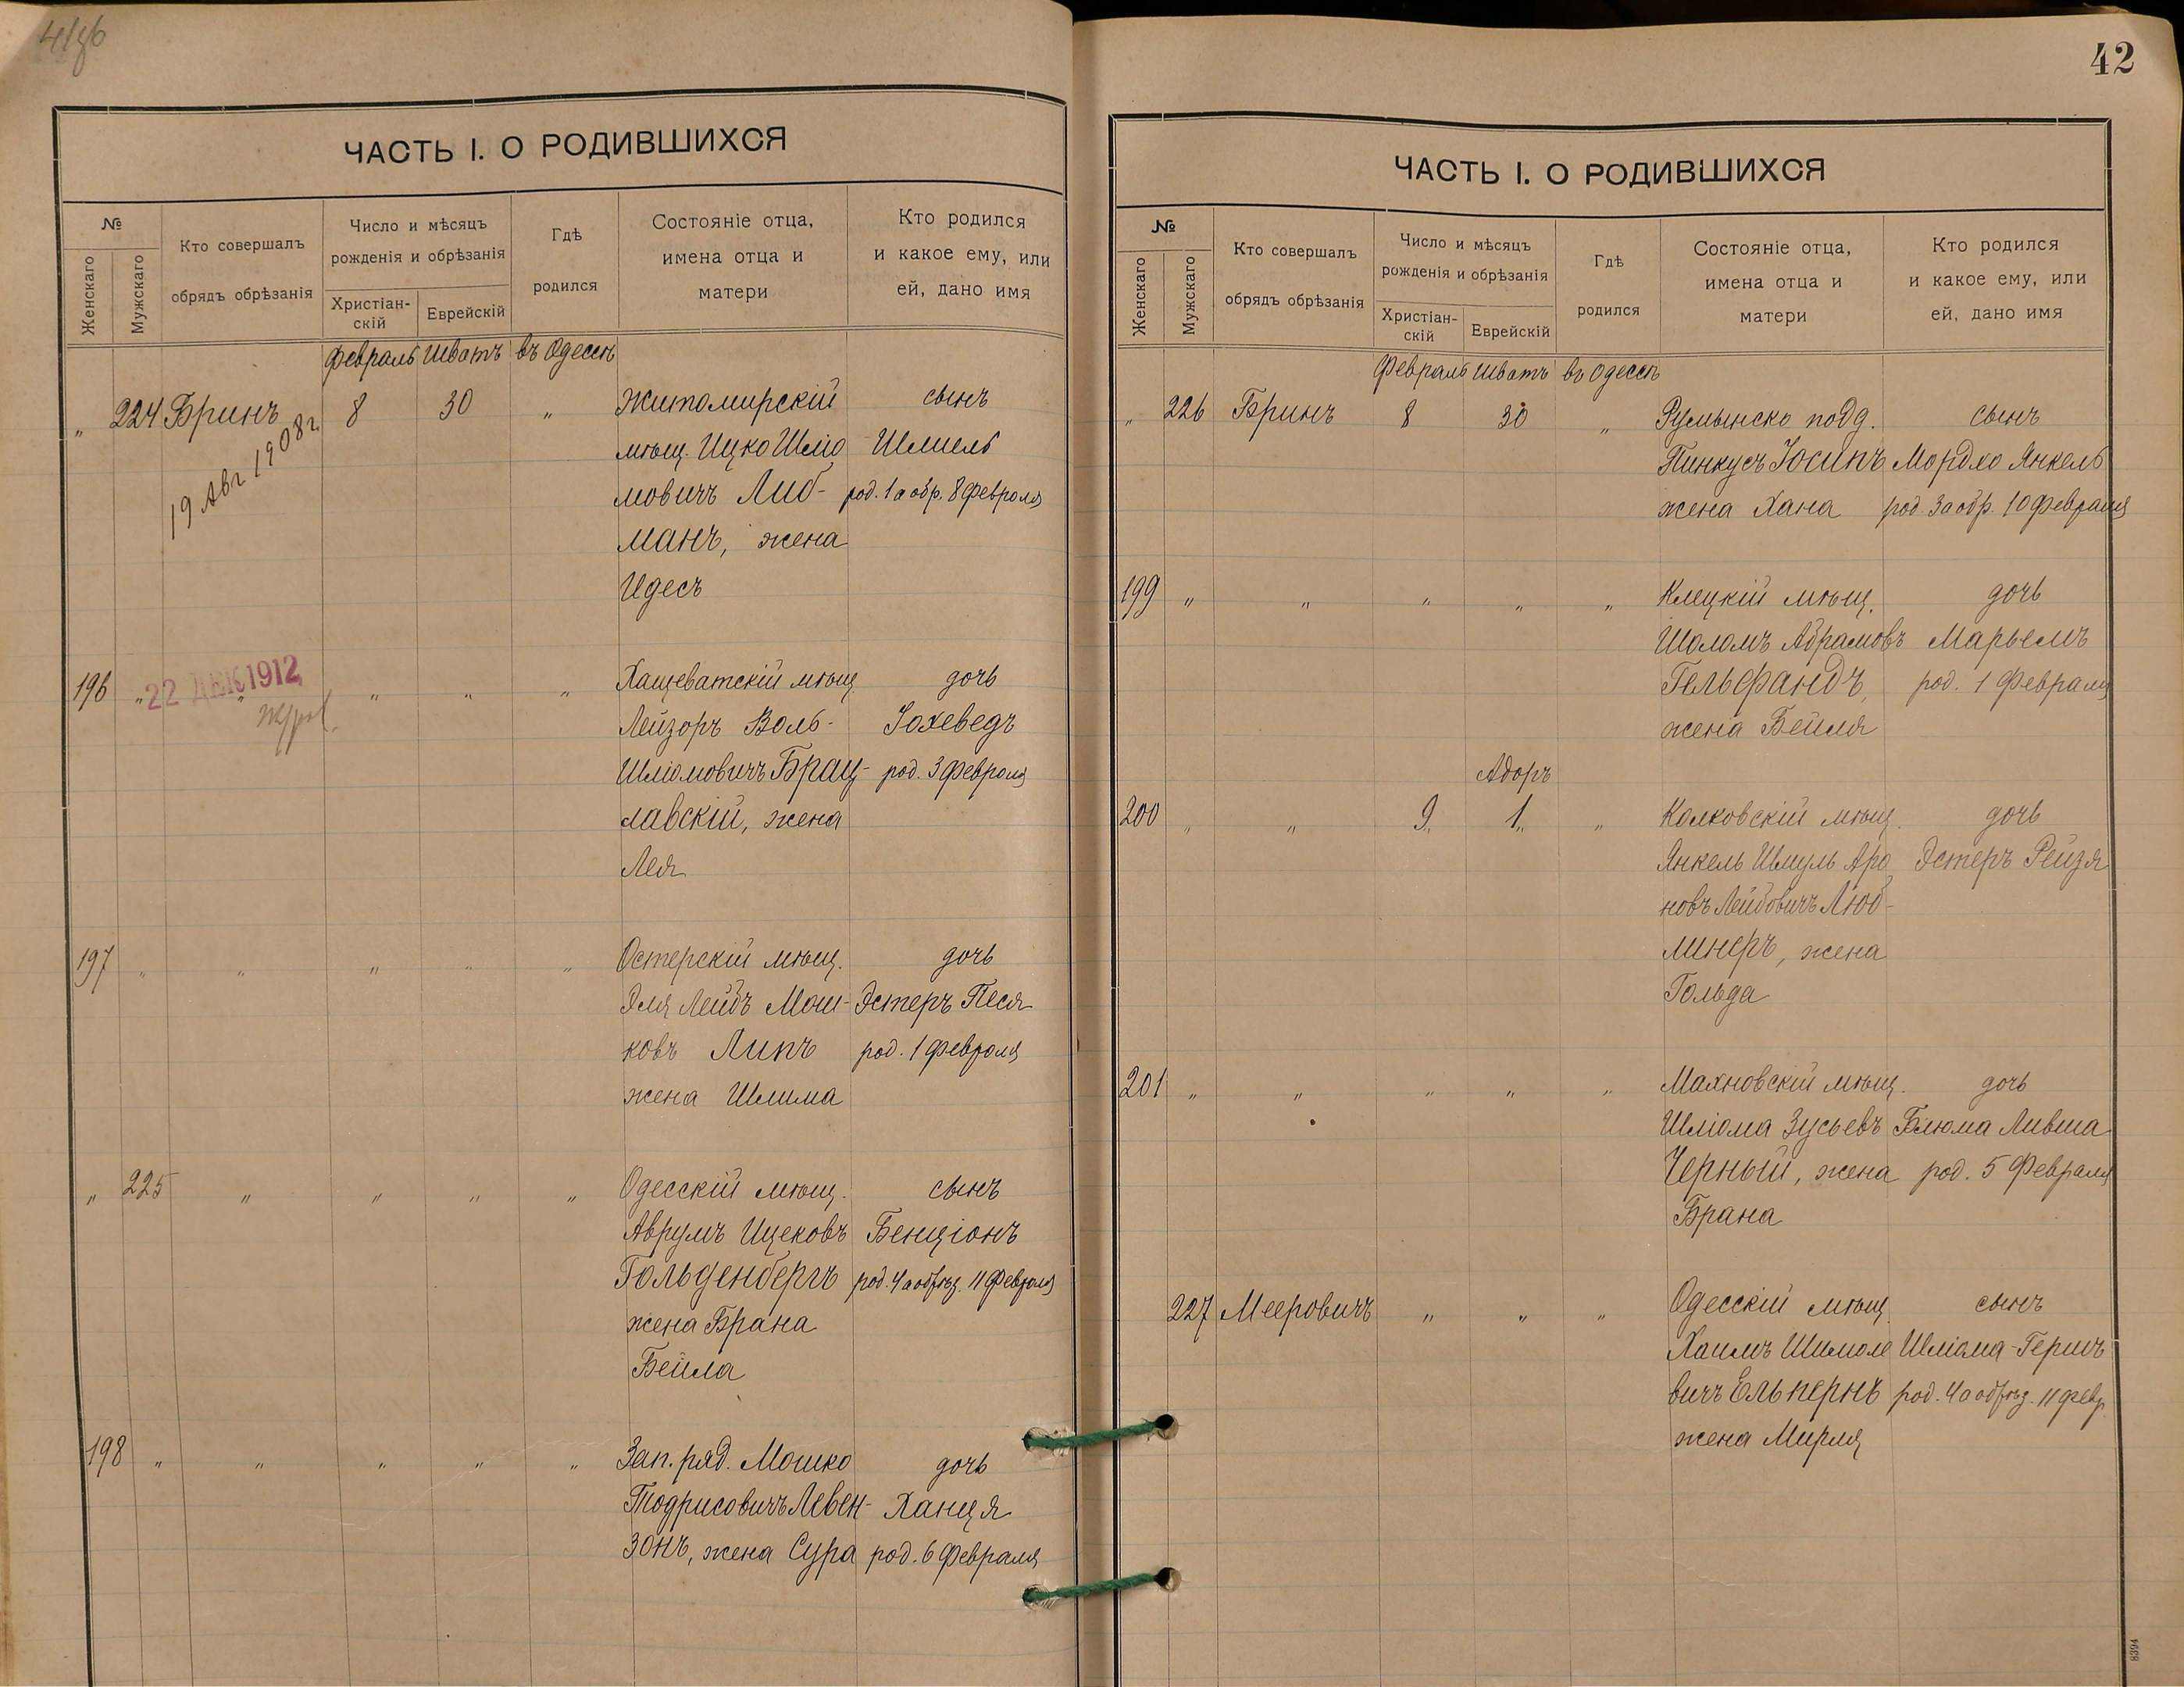 ЧАСТЬ I. О РОДИВШИХСЯ
№
Женскаго
Мужскаго
Кто совершалъ
обрядъ обрѣзанія
Число и мѣсяцъ
рожденія и обрѣзанія
Христіан-
скій
Еврейскій
Гдѣ
родился
Состояніе отца,
имена отца и
матери
Кто родился
и какое ему, или
ей, дано имя
Февраль Шватъ въ Одессѣ
" 224 Бринъ 8 30 " Житомирскій сынъ
19 Авг 1908 г.
мѣщ. Ицко Шліо Шмиель
мовичъ Либ- род. 1 а обр. 8 февраля
манъ, жена
Идесъ
196 " 22 ДЕК 1912 " " " " Хащеватскій мѣщ дочь
Лейзоръ Воль- Іохеведъ
Шліомовичъ Брац- род. 3 февраля
лавскій, жена
Лея
197 " " " " " Остерскій мѣщ. дочь
Эля Лейбъ Мош- Эстеръ Песя
ковъ Липъ род. 1 февраля
жена Шлима
" 225 " " " " Одесскій мѣщ. сынъ
Аврумъ Ицековъ Бенціонъ
Гольденбергъ род. 4 а обрѣз. 11 февраля
жена Брана
Бейла
198 " " " " " Зап. ряд. Мошко дочь
Тодрисовичъ Левен- Ханця
зонъ, жена Сура род. 6 февраля
42
ЧАСТЬ I. О РОДИВШИХСЯ
№
Женскаго
Мужскаго
Кто совершалъ
обрядъ обрѣзанія
Число и мѣсяцъ
рожденія и обрѣзанія
Христіан-
скій
Еврейскій
Гдѣ
родился
Состояніе отца,
имена отца и
матери
Кто родился
и какое ему, или
ей, дано имя
Февраль Шватъ въ Одессѣ
" 226 Бринъ 8 30 " Румынско подд. сынъ
Пинкусъ Іосипъ Мордко Янкель
жена Хана род. 3 а обр. 10 февраля
199 " " " " " Клецкій мѣщ. дочь
Шоломъ Абрамовъ Марьемъ
Гельфандъ, род. 1 Февраля
жена Бейля
Адоръ
200 " " 9 1 " Колковскій мѣщ. дочь
Янкель Шмуль Аро Эстеръ Рейзя
новъ Лейбовичъ Люб-
линеръ, жена
Гольда
201 " " " " " Махновскій мѣщ. дочь
Шліома Зусьевъ Блюма Ливша
Черный, жена род. 5 Февраля
Брана
227 Мееровичъ " " " Одесскій мѣщ сынъ
Хаимъ Шимоле Шліома-Гершъ
вичъ Ельпернъ род. 4 а обрѣз. 11 февр.
жена Мирля
8394